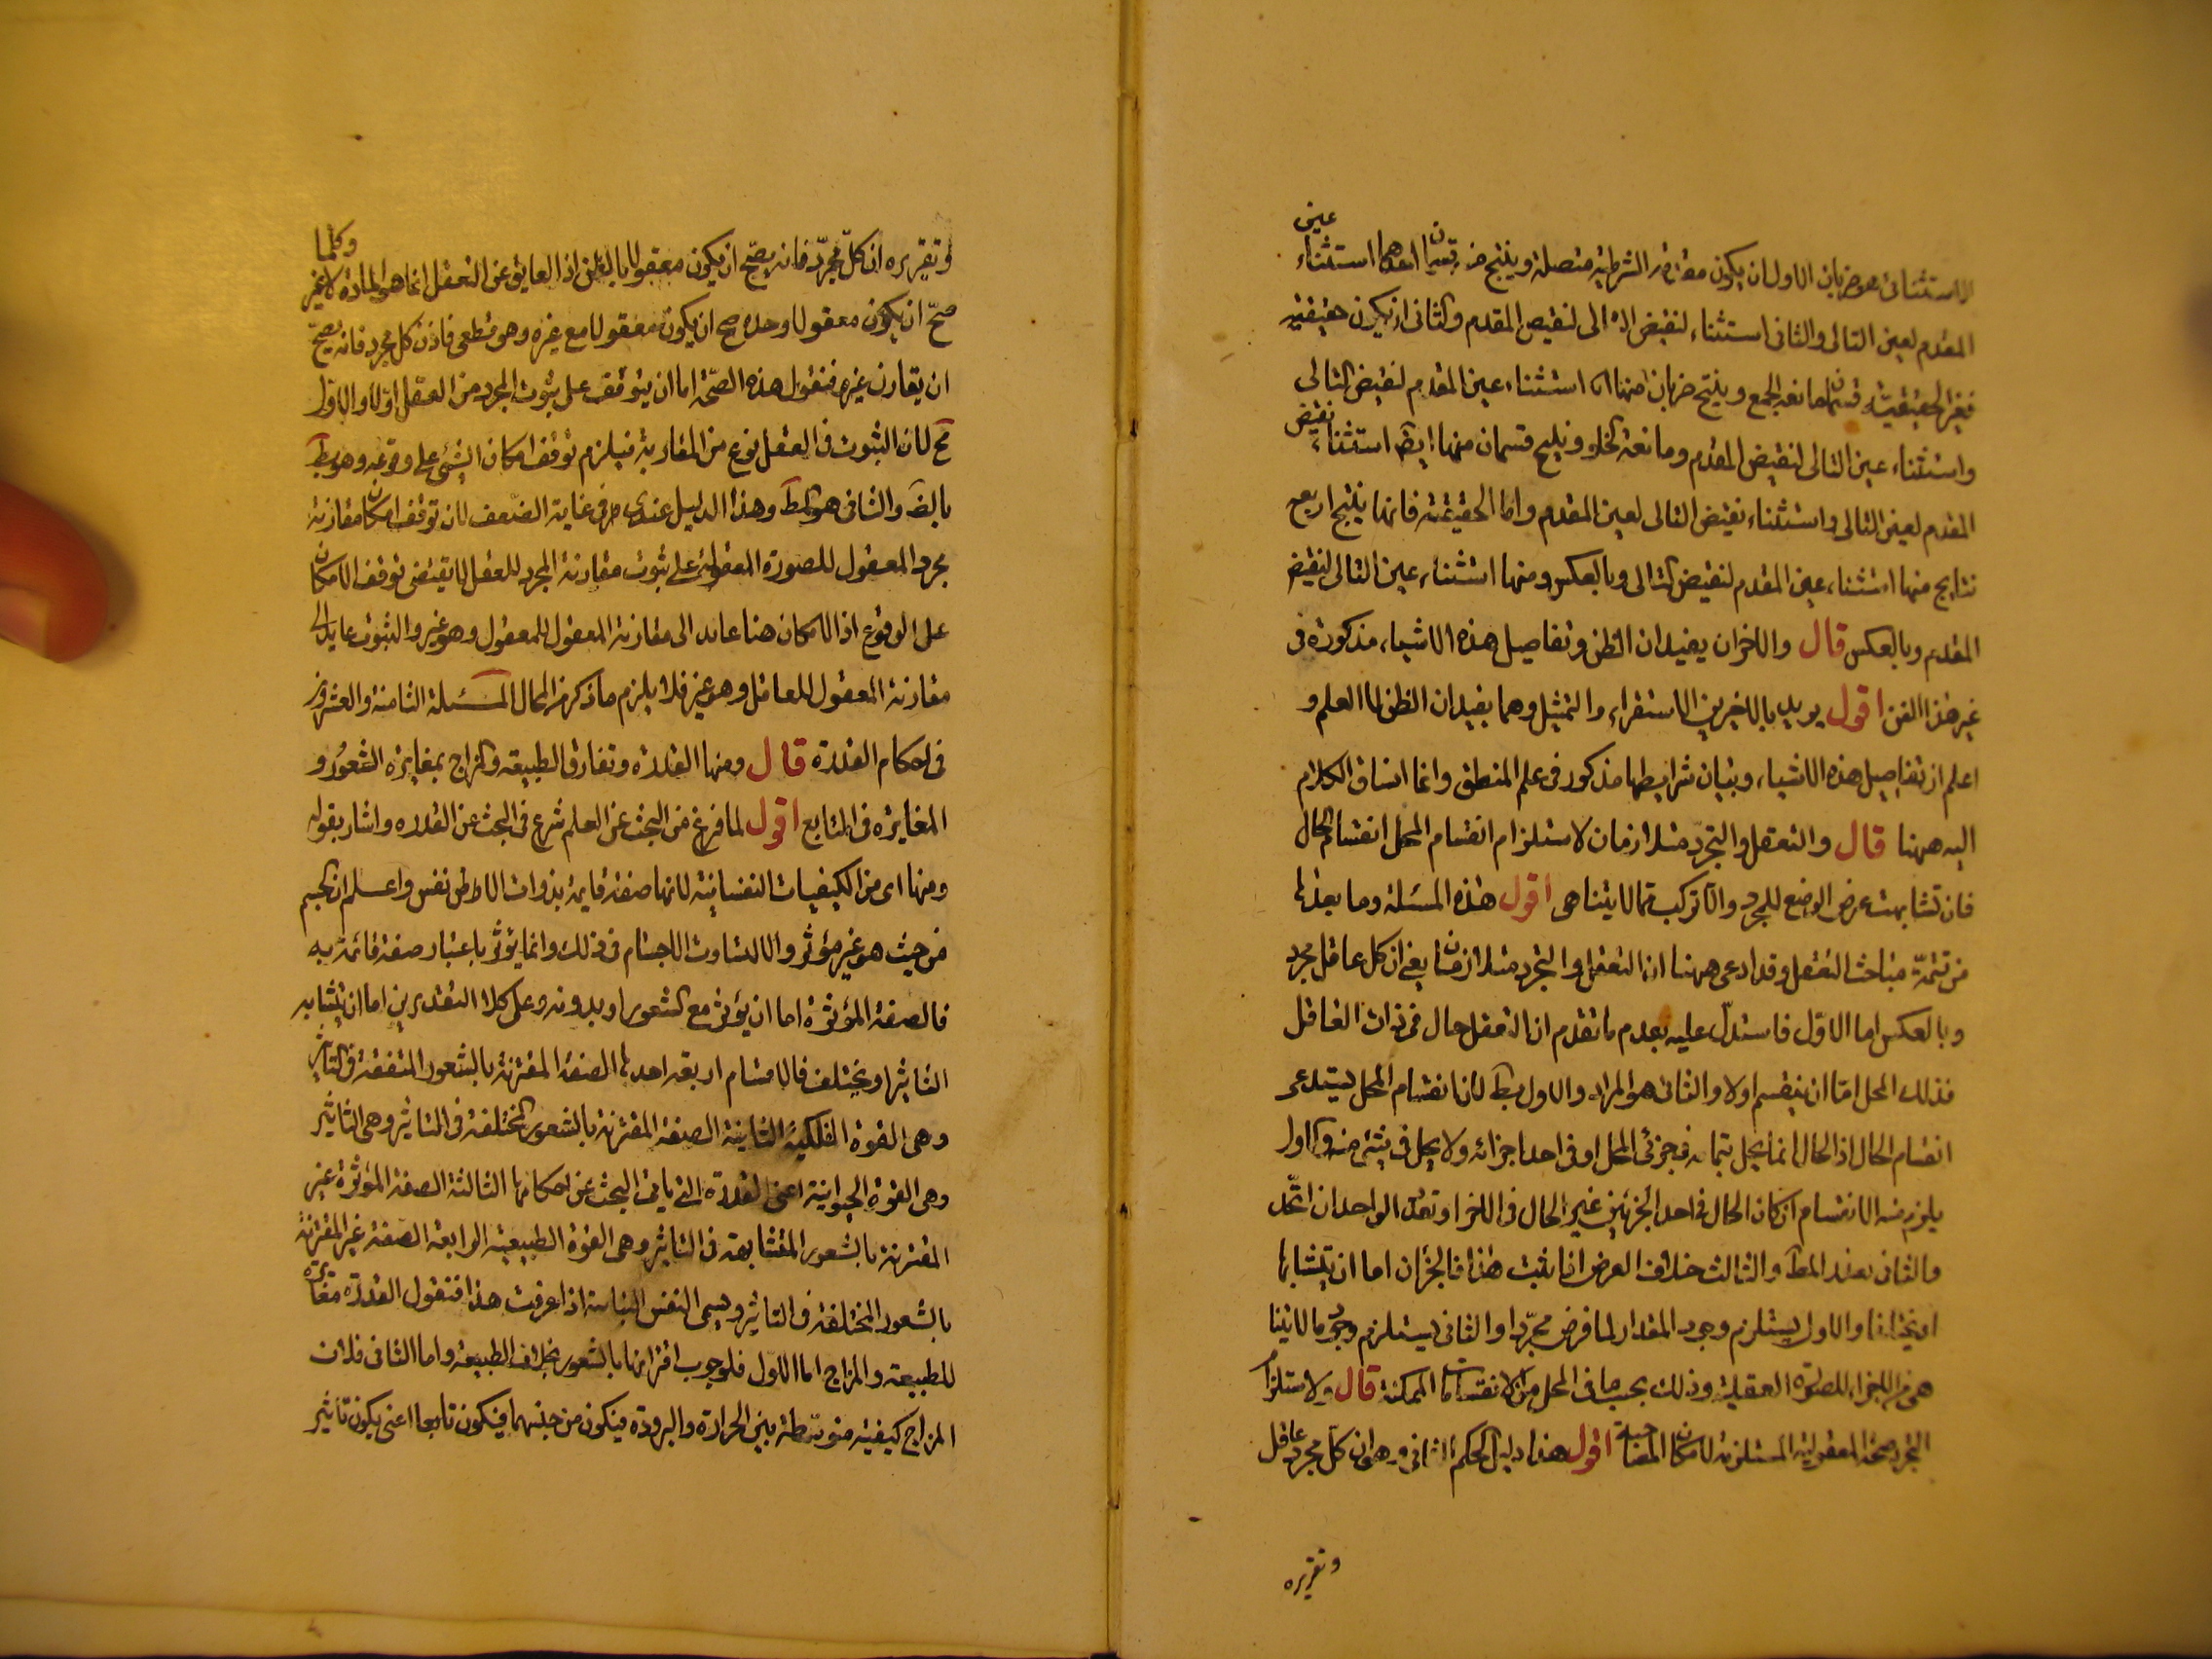 الاستثنائى هو ضربان الاول ان يكون مقدمته الشرطية متصلة وينتج منه قسمان احدهما استثناء عين
المقدم لعين التالى والثانى استثناء لنقيض التالى لنقيض المقدم والثانى ان يكون حقيقية
فغير الحقيقية قسمان مانعة الجمع وينتج ضربان منها استثناء عين المقدم لنقيض التالى
واستثناء عين التالى لنقيض المقدم ومانعة الخلو وينتج قسمان منها ايضا استثناء نقيض
المقدم لعين التالى واستثناء نقيض التالى لعين المقدم واما الحقيقية فانها ينتج اربع
نتايج منها استثناء عين المقدم لنقيض التالى وبالعكس ومنها استثناء عين التالى لنقيض
المقدم وبالعكس قال والاخران يفيدان الظن وتفاصيل هذه الاشياء مذكورة فى
غير هذا الفن اقول يريد بالاخرين الاستقراء والتمثيل وهما يفيدان الظن لا العلم و
اعلم ان تفاصيل هذه الاشياء وبيان شرايطها مذكور فى علم المنطق وانما انساق الكلام
اليه ههنا قال والتعقل والتجرد متلازمان لاستلزام انقسام المحل انقسام الحال
فان تشابهت عرض الوضع للمجرد والا تركب مما لا يتناهى اقول هذه المسئلة وما بعدها
من تتمة مباحث التعقل وقد ادعى ههنا ان التعقل والتجرد متلازمان يعنى ان كل عاقل مجرد
وبالعكس اما الاول فاستدل عليه بعدم ما تقدم ان التعقل حال فى ذات العاقل
فذلك المحل اما ان ينقسم اولا والثانى هو المراد والاول بط لان انقسام المحل يستدعى
انقسام الحال اذ الحال انما يحل بتمامه فى جزئى المحل او فى احد اجزائه ولا يحل فى شئ منه والاول
يلزم منه الانقسام ان كان الحال فى احد الجزئين غير الحال فى الاخر او تعدد الواحد ان اتحد
والثانى بعيد المط والثالث خلاف الفرض اذا ثبت هذا فالجزءان اما ان يتشابها
او يختلفا والاول يستلزم وجود المقدار لما فرض مجردا والثانى يستلزم وجود ما لا يتنا
هى من الاجزاء للصورة العقلية وذلك بحسب ما فى المحل من الانقسامات الممكنة قال ولاستلزام
التجرد صحة المعقولية المستلزمة لامكان المصاحبة اقول هذا دليل الحكم الثانى وهو ان كل مجرد عاقل
وتقريره
وتقريره ان كل مجرد فانه يصح ان يكون معقولا بالفعل اذ العايق عن التعقل انما هو المادة لا غير وكلما
صح ان يكون معقولا وحده صح ان يكون معقولا مع غيره وهو قطعى فاذن كل مجرد فانه يصح
ان يقارن غيره فنقول هذه الصحة اما ان يتوقف على ثبوت المجرد فى العقل اولا والاول
مح لان الثبوت فى العقل نوع من المقارنة فيلزم توقف امكان الشئ على وقوعه وهو بط
بالضـ والثانى هو المط وهذا الدليل عندى فى غاية الضعف لان توقف امكان مقارنة
مجرد المعقول للصورة المعقولة على ثبوت مقارنة المجرد للعقل لا يقتضى توقف الامكان
على الوقوع اذ الامكان هنا عايد الى مقارنة المعقول للمعقول وهو غير والثبوت عايد الى
مقارنة المعقول للعاقل وهو غير فلا يلزم ما ذكر من المحال المسئلة الثامنة والعشرون
فى احكام القدرة قال ومنها القدرة وتفارق الطبيعة والمزاج بمغايرة الشعور و
المغايرة فى التابع اقول لما فرغ من البحث عن العلم شرع فى البحث عن القدرة واشار بقوله
ومنها اى من الكيفيات النفسانية لانها صفة قايمة بذوات الانفس واعلم ان الجسم
من حيث هو غير مؤثر والا لتساوت الاجسام فى ذلك وانما يؤثر باعتبار صفة قائمة به
فالصفة المؤثرة اما ان يؤثر مع الشعور او بدونه وعلى كلا التقديرين اما ان يتشابه
التاثير او يختلف فالاقسام اربعة احدها الصفة المقترنة بالشعور المتفقة فى التاثير
وهى القوة الفلكية الثانية الصفة المقترنة بالشعور المختلفة فى التاثير وهى التاثير
وهى القوة الحيوانية اعنى القدرة التى ياتى البحث عن احكامها الثالثة الصفة المؤثرة غير
المقترنة بالشعور المتشابهة فى التاثير وهى القوة الطبيعية الرابعة الصفة غير المقترنة
بالشعور المختلفة فى التاثير ويسمى النفس النباتية اذا عرفت هذا فنقول القدرة مغايرة
للطبيعة والمزاج اما الاول فلوجوب اقترانها بالشعور بخلاف الطبيعة واما الثانى فلان
المزاج كيفية متوسطة بين الحرارة والبرودة فيكون من جنسهما فيكون تابعا اعنى يكون تاثير